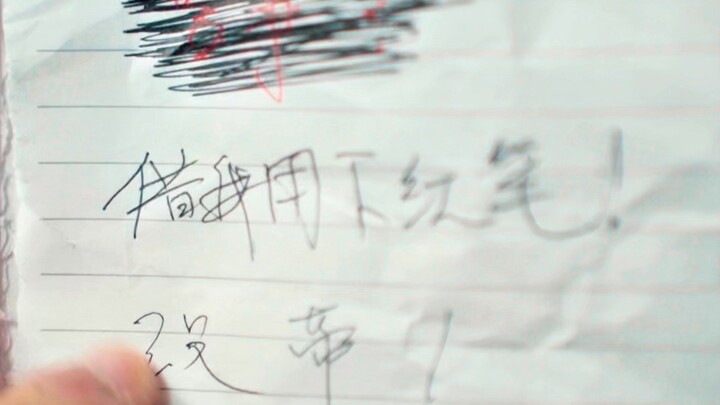 借我用下红笔!
没带?